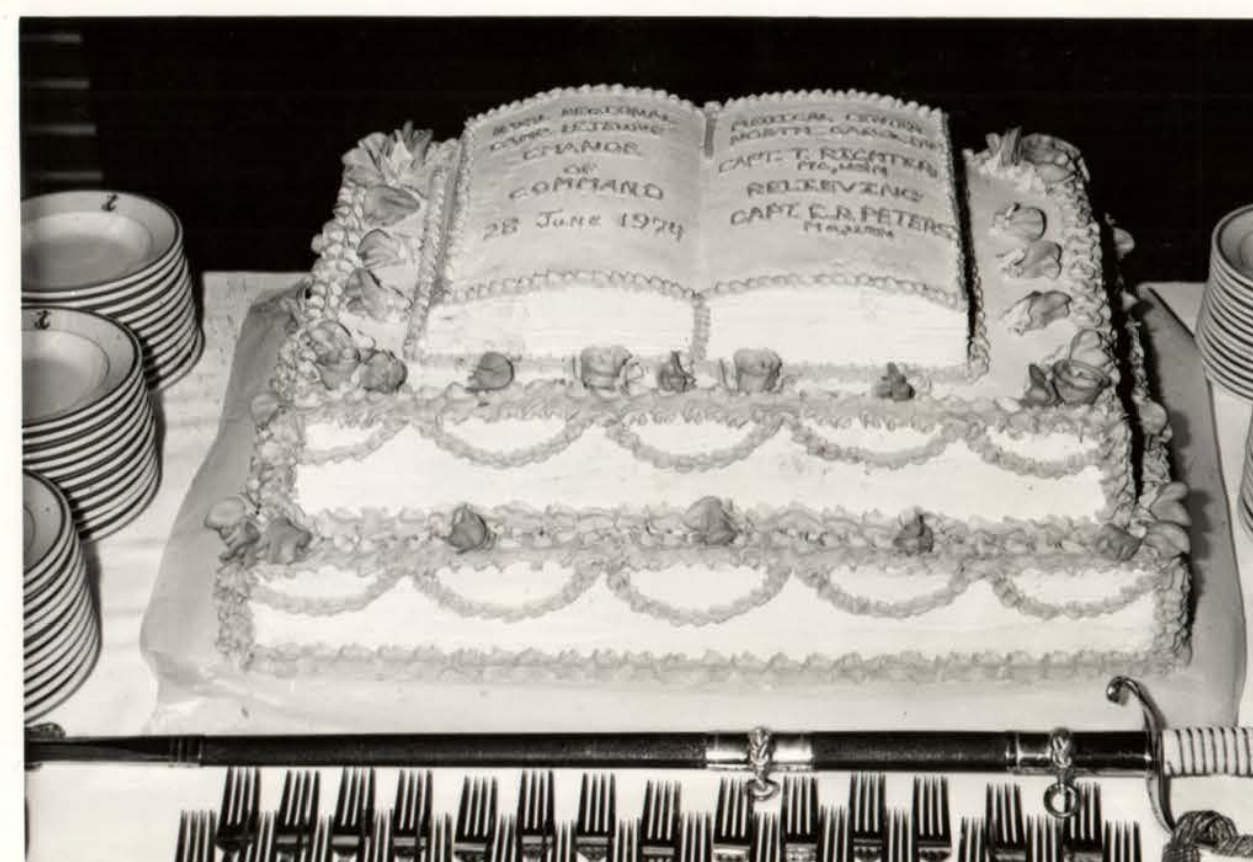 NAVAL REGIONAL
CAMP LEJEUNE
CHANGE
OF
COMMAND
28 June 1974
MEDICAL CENTER
NORTH CAROLINA
CAPT. T. RICHTER
MC, USN
RELIEVING
CAPT. E.R. PETERS
MC, USN